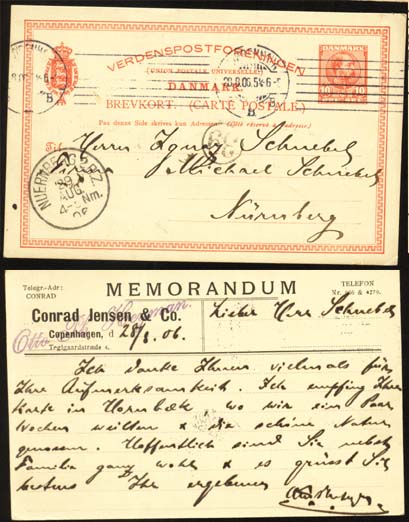 VERDENSPOSTFORENINGEN
(UNION POSTALE UNIVERSELLE)
DANMARK.
BREVKORT. (CARTE POSTALE.)
Paa denne Side skrives kun Adressen. (Côté réservé à l'adresse.)
DANMARK
10 10
28.8.06.5¼6-F
B
Til Herrn Ignaz Schnebel
Michael Schnebel
Nürnberg
NUERNBERG 2 B.P.
29
AUG
4-5 Nm.
06
Telegr.-Adr:
CONRAD
MEMORANDUM
TELEFON
& 4279.
Conrad Jensen & Co.
Copenhagen, d 28/8. 06.
Otto Herrman.
Lieber Herr Schnebel
Ich danke Ihnen vielmals für
Ihre Aufmerksamkeit. Ich empfing Ihre
Karte in Hornbæk wo wir ein Paar
Wochen weilten & die schöne Natur
genossen. Hoffentlich sind Sie nebst
Familie ganz wohl & es grüsst Sie
bestens Ihr ergebener